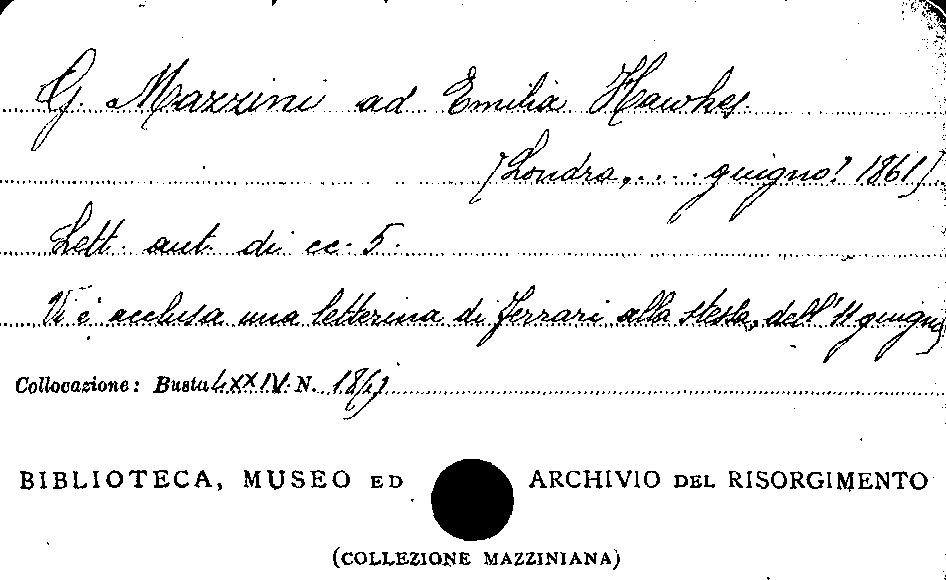 G. Mazzini ad Emilia Hawkes.
[Londra, .... giugno? 1861]
Lett. aut. di cc. 5.
Vi è acclusa una letterina di Ferrari alla stessa, dell'11 giugno
Collocazione: Busta LXXIV. N.
BIBLIOTECA, MUSEO ED ARCHIVIO DEL RISORGIMENTO
(COLLEZIONE MAZZINIANA)